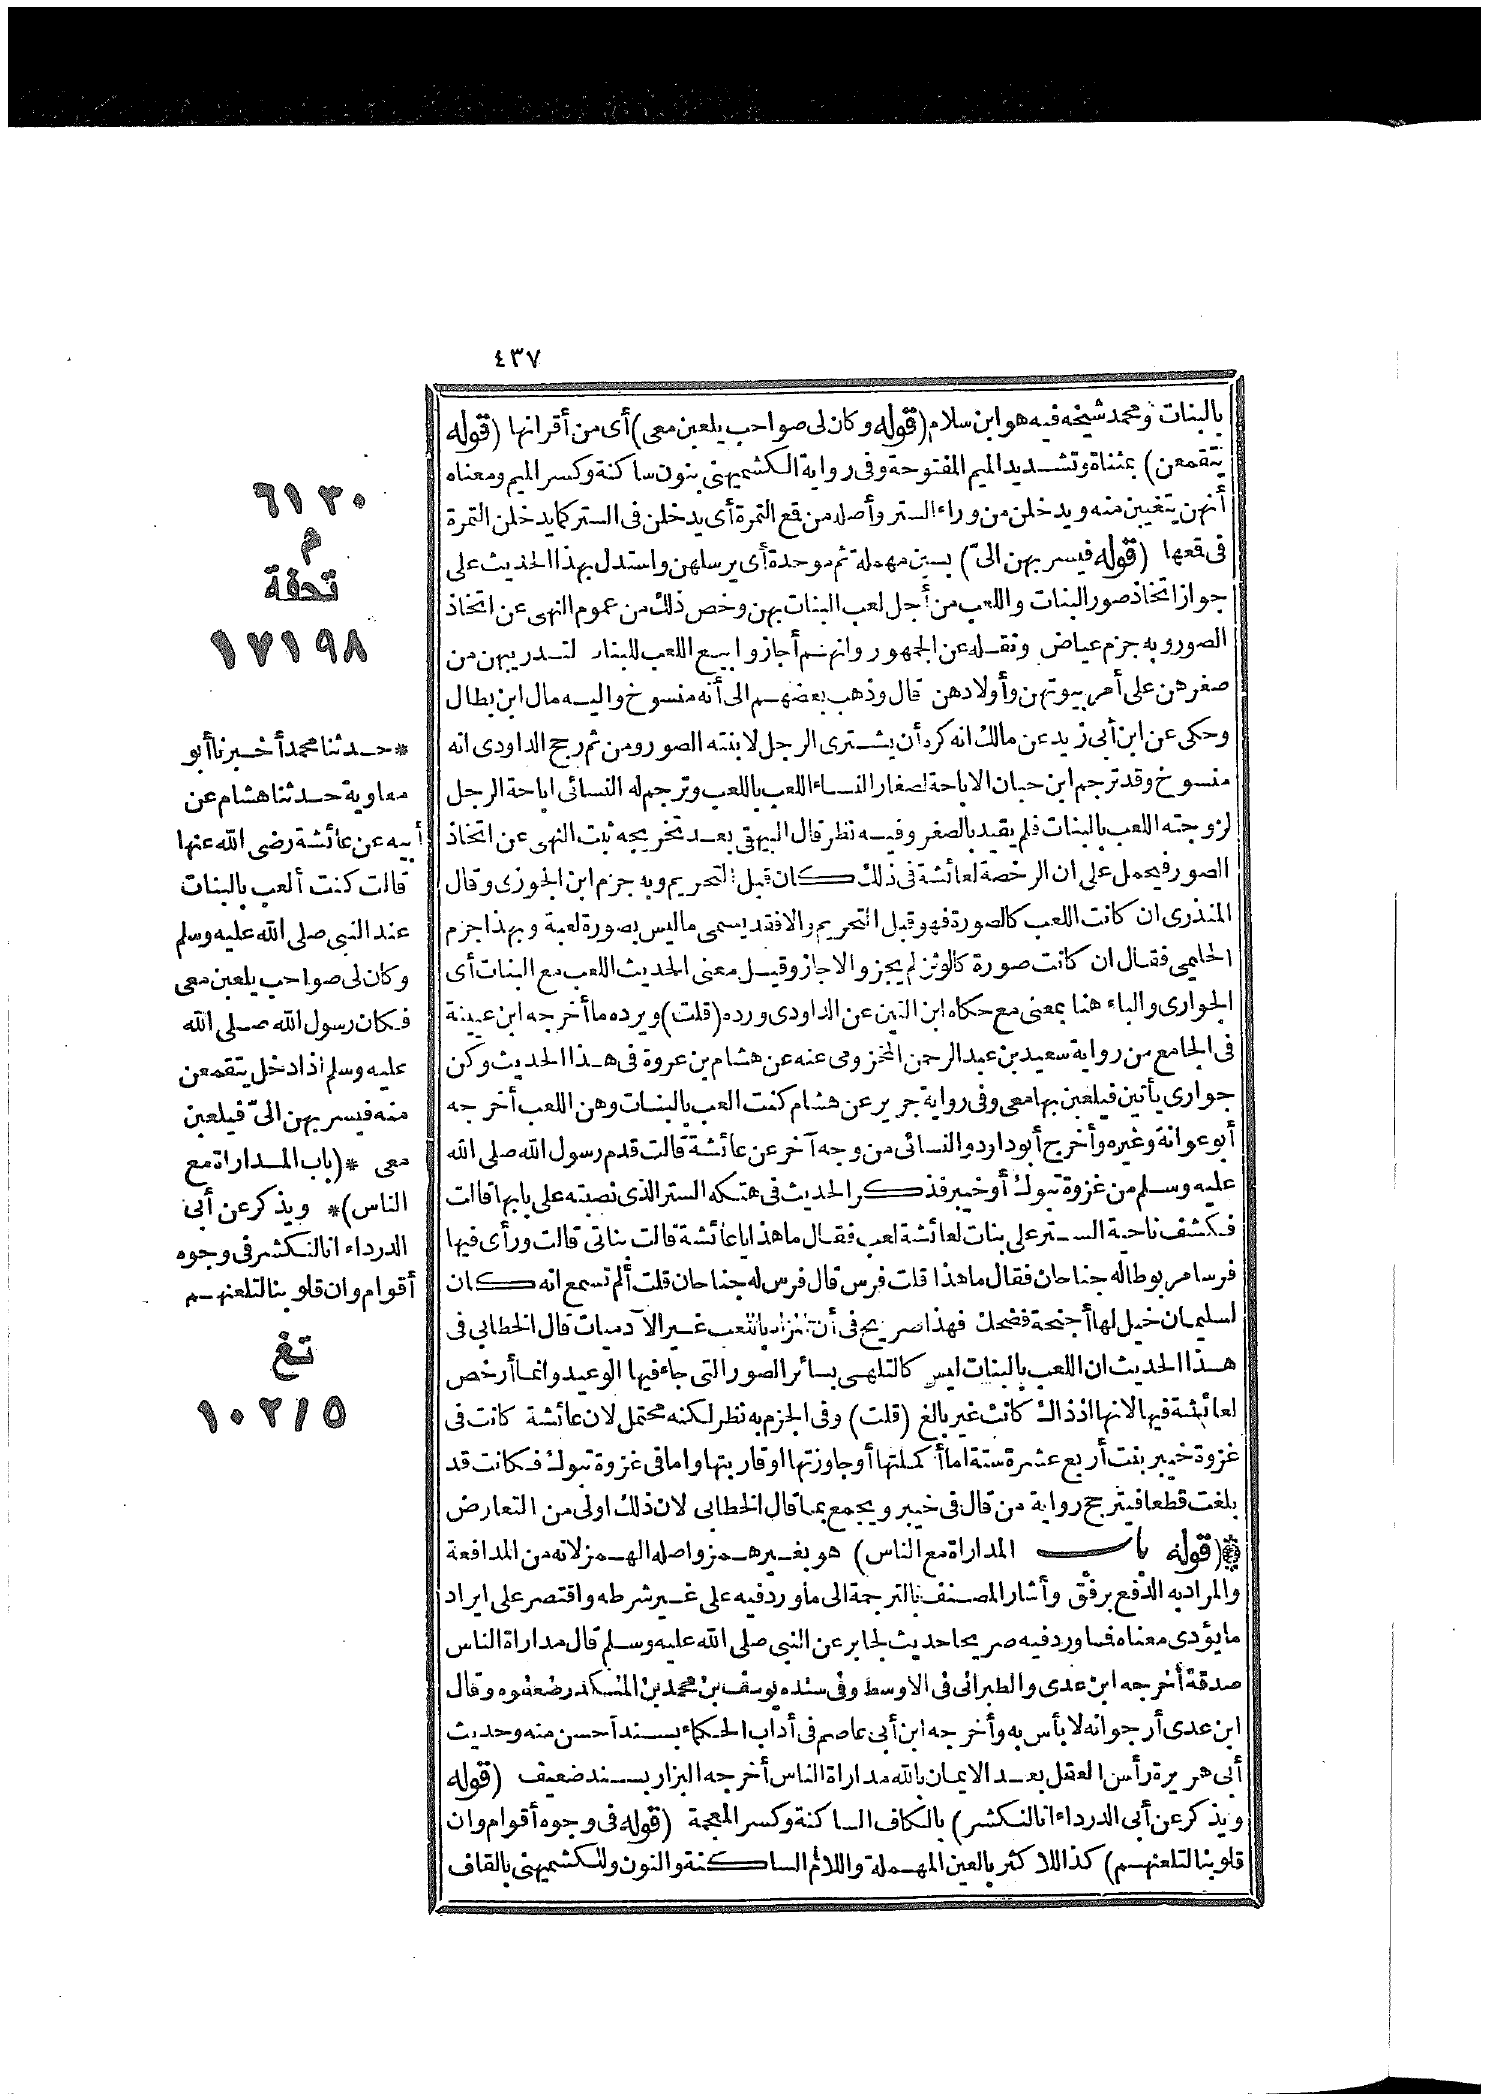 ٤٣٧
بالبنات ومحمد شيخه فيه هو ابن سلام (قوله وكان لى صواحب يلعبن معى) أى من أقرانها (قوله
يتقمعن) بمثناة وتشديد الميم المفتوحة وفى رواية الكشميهنى بنون ساكنة وكسر الميم ومعناه
أنهن يتغيبن منه ويدخلن من وراء الستر وأصله من قمع التمرة أى يدخلن فى الستر كما يدخلن التمرة
فى قمعها (قوله فيسربهن الىّ) بسين مهملة ثم موحدة أى يرسلهن واستدل بهذا الحديث على
جواز اتخاذ صور البنات واللعب من أجل لعب البنات بهن وخص ذلك من عموم النهى عن اتخاذ
الصور وبه جزم عياض ونقله عن الجمهور وانهم أجازوا بيع اللعب للبنات لتدريبهن من
صغرهن على أمر بيوتهن وأولادهن قال وذهب بعضهم الى أنه منسوخ واليه مال ابن بطال
وحكى عن ابن أبى زيد عن مالك انه كره أن يشترى الرجل لابنته الصور ومن ثم رجح الداودى انه
منسوخ وقد ترجم ابن حبان الاباحة لصغار النساء اللعب باللعب وترجم له النسائى اباحة الرجل
لزوجته اللعب بالبنات فلم يقيد بالصغر وفيه نظر قال البيهقى بعد تخريجه ثبت النهى عن اتخاذ
الصور فيحمل على ان الرخصة لعائشة فى ذلك كان قبل التحريم وبه جزم ابن الجوزى وقال
المنذرى ان كانت اللعب كالصورة فهو قبل التحريم والا فقد يسمى ما ليس بصورة لعبة وبهذا جزم
الحليمى فقال ان كانت صورة كالوثن لم يجز والا جاز وقيل معنى الحديث اللعب مع البنات أى
الجوارى والباء هنا بمعنى مع حكاه ابن التين عن الداودى ورده (قلت) ويرده ما أخرجه ابن عيينة
فى الجامع من رواية سعيد بن عبد الرحمن المخزومى عنه عن هشام بن عروة فى هذا الحديث وكن
جوارى يأتين فيلعبن بها معى وفى رواية جرير عن هشام كنت العب بالبنات وهن اللعب أخرجه
أبو عوانة وغيره وأخرج أبو داود والنسائى من وجه آخر عن عائشة قالت قدم رسول الله صلى الله
عليه وسلم من غزوة تبوك أو خيبر فذكر الحديث فى هتكه الستر الذى نصبته على بابها قالت
فكشف ناحية الستر على بنات لعائشة لعب فقال ما هذا يا عائشة قالت بناتى قالت ورأى فيها
فرسا مربوطا له جناحان فقال ما هذا قلت فرس قال فرس له جناحان قلت ألم تسمع انه كان
لسليمان خيل لها أجنحة فضحك فهذا صريح فى أن المراد باللعب غير الآدميات قال الخطابى فى
هذا الحديث ان اللعب بالبنات ليس كالتلهى بسائر الصور التى جاء فيها الوعيد وانما أرخص
لعائشة فيها لانها اذ ذاك كانت غير بالغ (قلت) وفى الجزم به نظر لكنه محتمل لان عائشة كانت فى
غزوة خيبر بنت أربع عشرة سنة اما أكملتها أو جاوزتها او قاربتها واما فى غزوة تبوك فكانت قد
بلغت قطعا فيترجح رواية من قال فى خيبر ويجمع بما قال الخطابى لان ذلك اولى من التعارض
(قوله باب المداراة مع الناس) هو بغير همز واصله الهمز لانه من المدافعة
والمراد به الدفع برفق وأشار المصنف بالترجمة الى ما ورد فيه على غير شرطه واقتصر على ايراد
ما يؤدى معناه فما ورد فيه صريحا حديث لجابر عن النبى صلى الله عليه وسلم قال مداراة الناس
صدقة أخرجه ابن عدى والطبرانى فى الاوسط وفى سنده يوسف بن محمد بن المنكدر ضعفوه وقال
ابن عدى أرجو انه لا بأس به وأخرجه ابن أبى عاصم فى أداب الحكماء بسند أحسن منه وحديث
أبى هريرة رأس العقل بعد الايمان بالله مداراة الناس أخرجه البزار بسند ضعيف (قوله
ويذكر عن أبى الدرداء انا لنكشر) بالكاف الساكنة وكسر المعجمة (قوله فى وجوه أقوام وان
قلوبنا لتلعنهم) كذا للاكثر بالعين المهملة واللام الساكنة والنون وللكشميهنى بالقاف
٦١٣٠
م
تحفة
١٧١٩٨
*حدثنا محمد أخبرنا أبو
معاوية حدثنا هشام عن
أبيه عن عائشة رضى الله عنها
قالت كنت ألعب بالبنات
عند النبى صلى الله عليه وسلم
وكان لى صواحب يلعبن معى
فكان رسول الله صلى الله
عليه وسلم اذا دخل يتقمعن
منه فيسربهن الىّ فيلعبن
معى *(باب المداراة مع
الناس)* ويذكر عن أبى
الدرداء انا لنكشر فى وجوه
أقوام وان قلوبنا لتلعنهم
تغ
١٠٢/٥